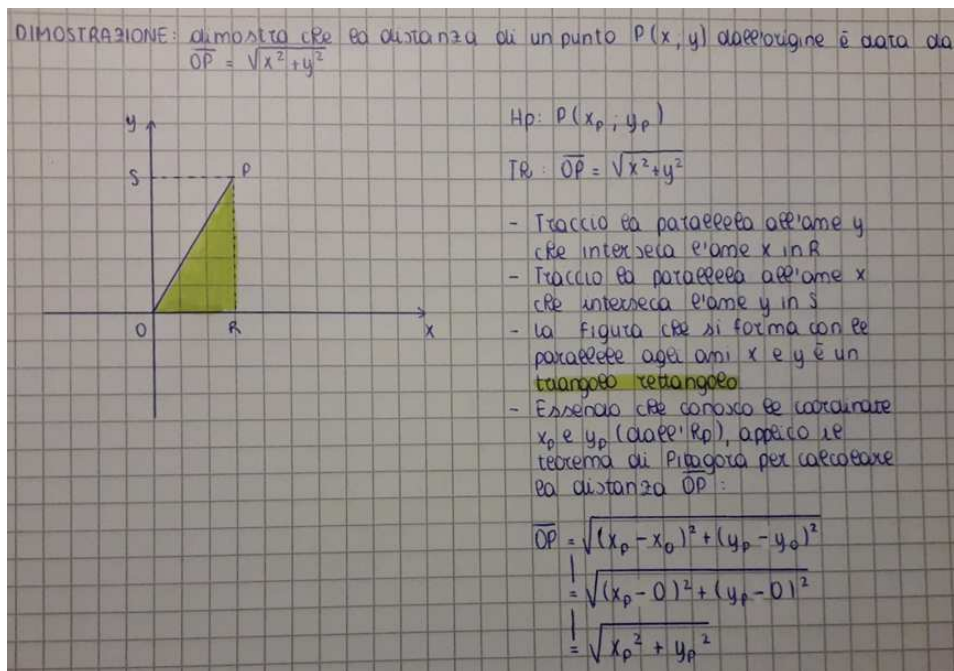 DIMOSTRAZIONE: dimostra che la distanza di un punto P(x; y) dall'origine è data da
OP = √x²+y²
y
S
P
O
R
x
Hp: P(xₚ; yₚ)
Th: OP = √x²+y²
- Traccio la parallela all'asse y
che interseca l'asse x in R
- Traccio la parallela all'asse x
che interseca l'asse y in S
- La figura che si forma con le
parallele agli assi x e y è un
triangolo rettangolo
- Essendo che conosco le coordinate
xₚ e yₚ (dall'hp), applico il
teorema di Pitagora per calcolare
la distanza OP:
OP = √(xₚ - x₀)² + (yₚ - y₀)²
= √(xₚ - 0)² + (yₚ - 0)²
= √xₚ² + yₚ²